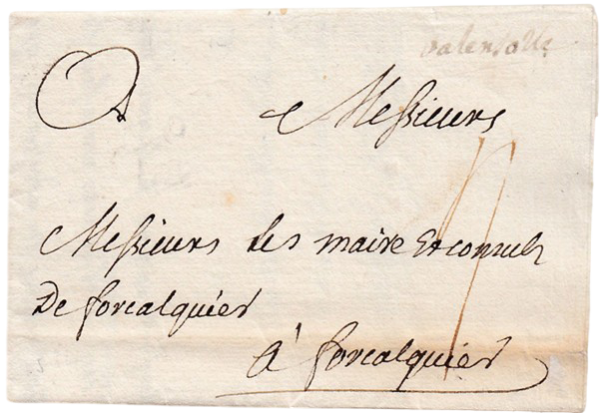 valensolle
A Messieurs
Messieurs les maire Et consuls
De forcalquier
à forcalquier